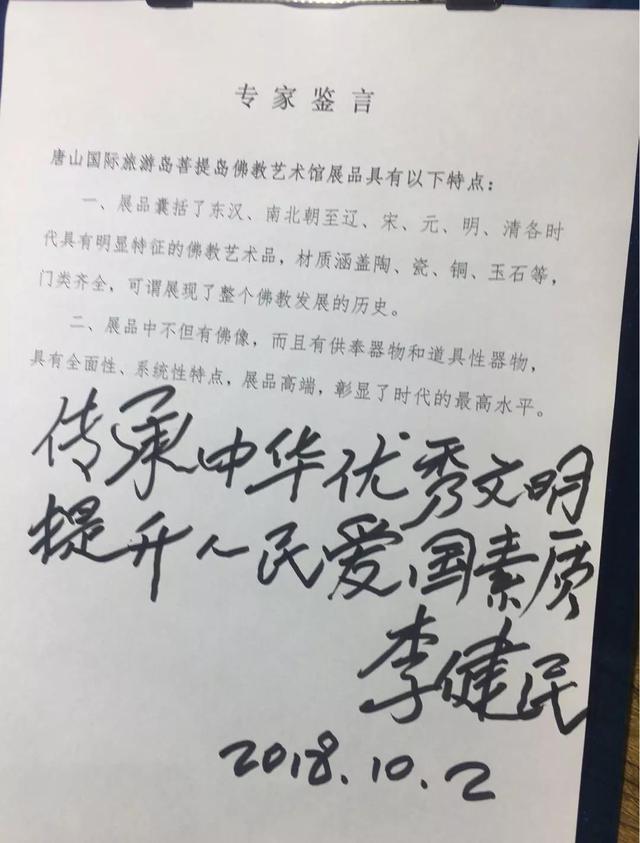 专家鉴言
唐山国际旅游岛菩提岛佛教艺术馆展品具有以下特点：
一、展品囊括了东汉、南北朝至辽、宋、元、明、清各时
代具有明显特征的佛教艺术品，材质涵盖陶、瓷、铜、玉石等，
门类齐全，可谓展现了整个佛教发展的历史。
二、展品中不但有佛像，而且有供奉器物和道具性器物，
具有全面性、系统性特点，展品高端，彰显了时代的最高水平。
传承中华优秀文明
提升人民爱国素质
李健民
2018.10.2